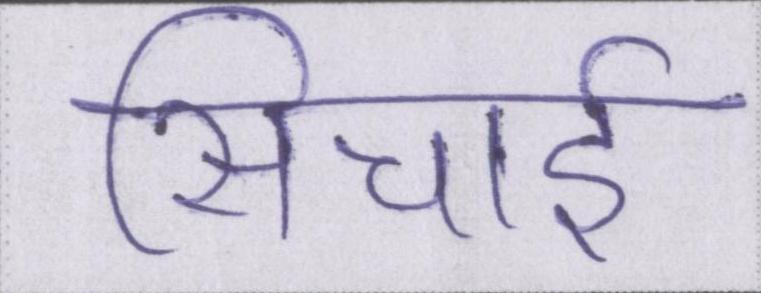 सिचाई